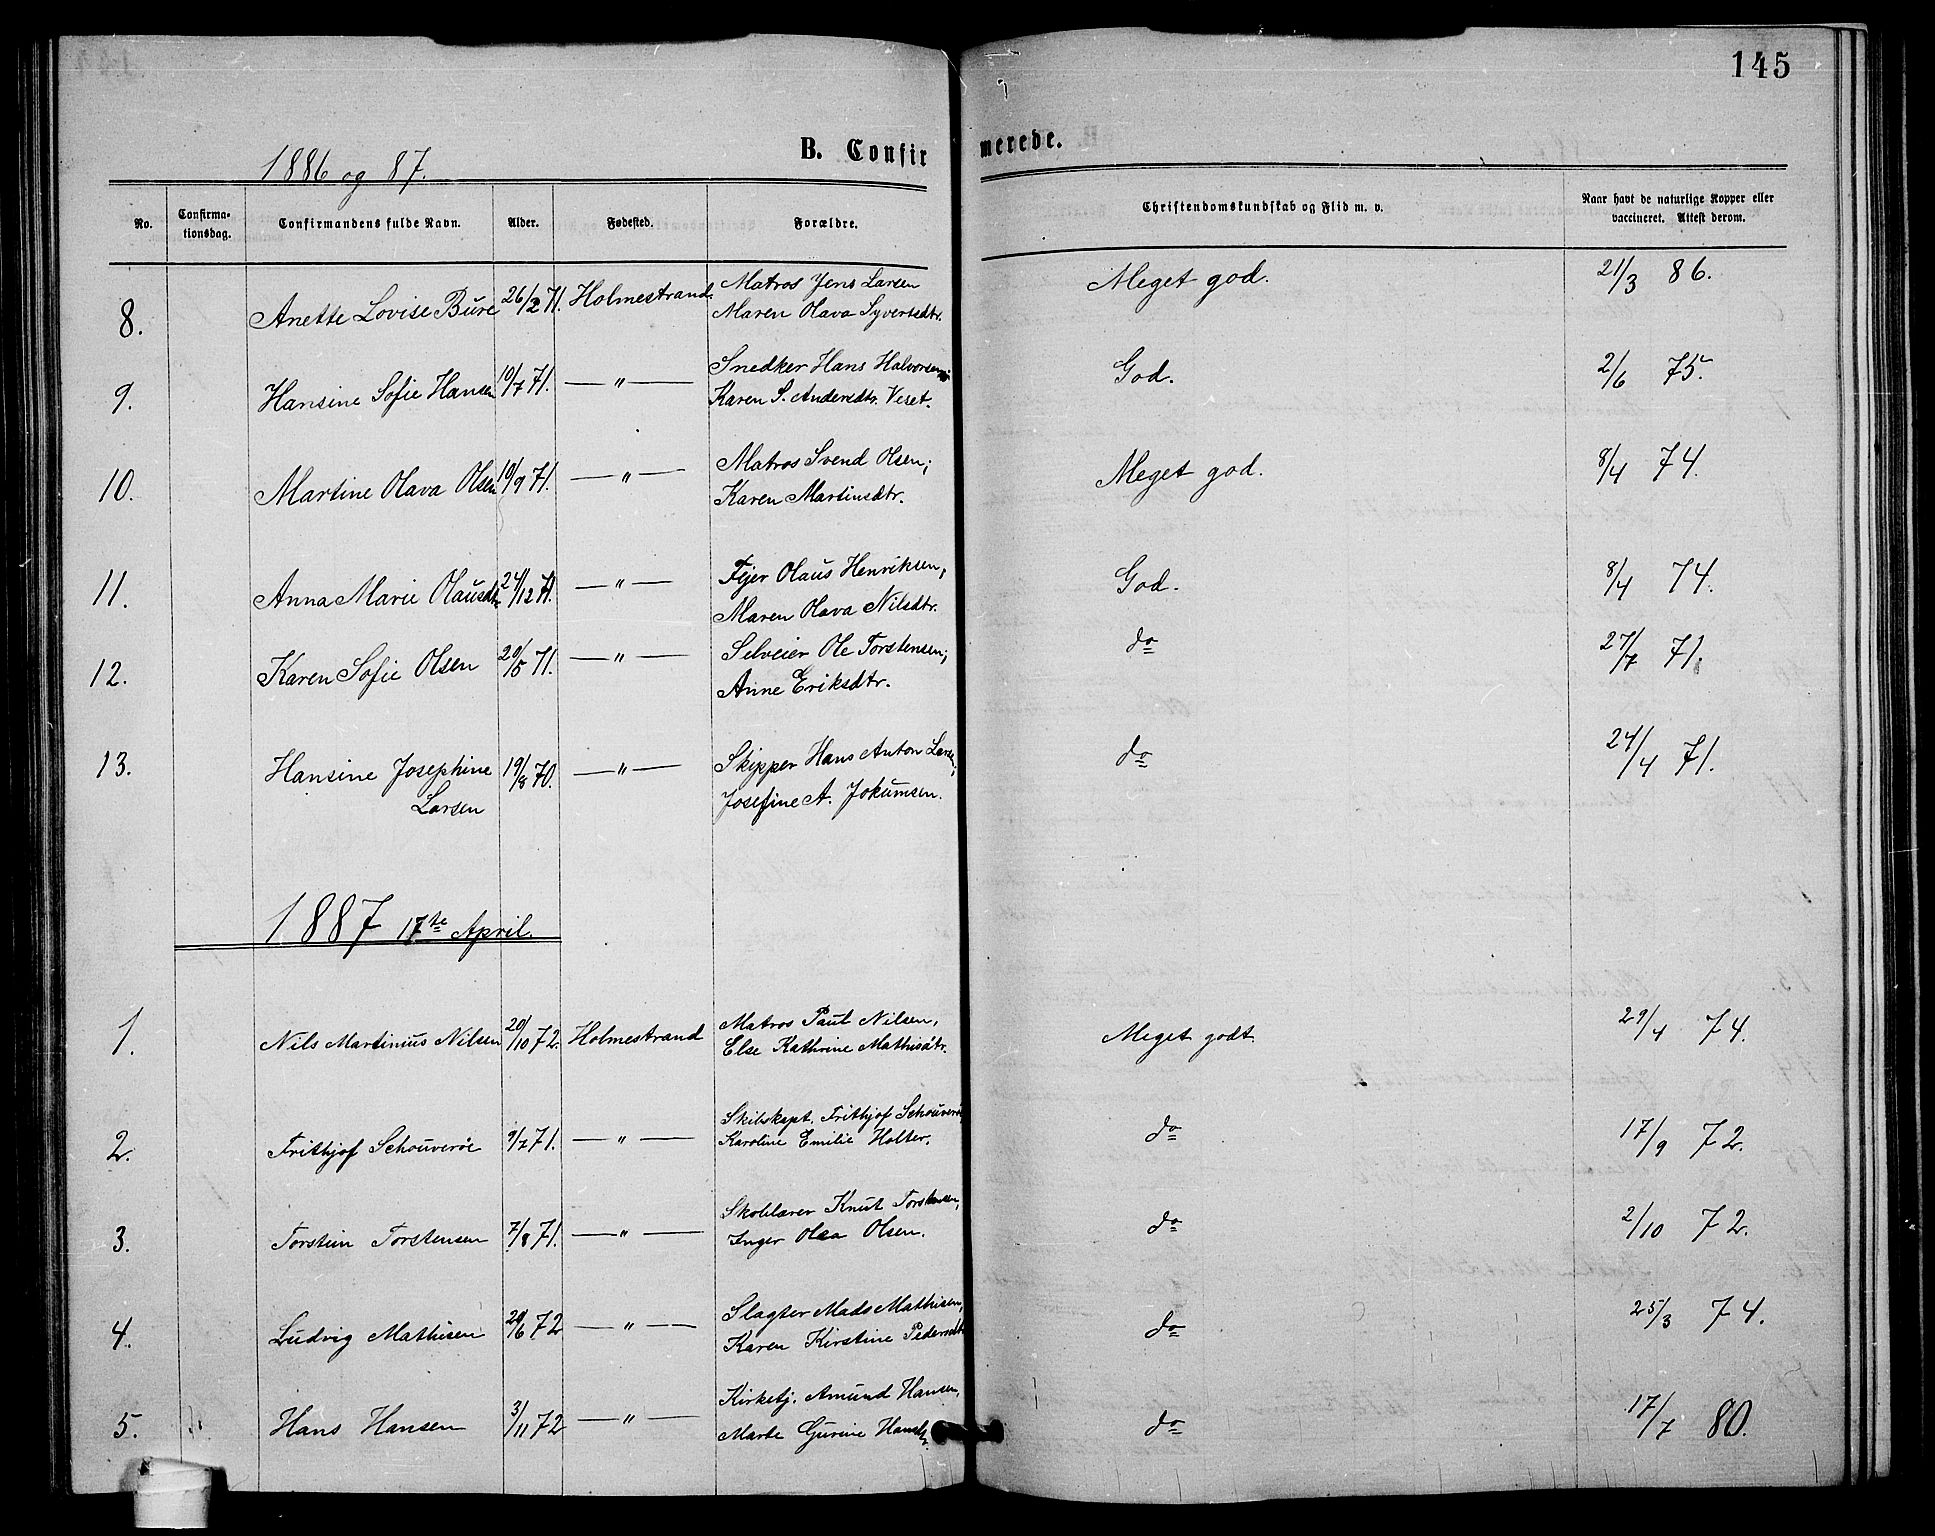 145
B. Confirmerede.
1886 og 87.
No. Confirmationsdag. Confirmandens fulde Navn. Alder. Fødested. Forældre. Christendomskundskab og Flid m. v. Naar havt de naturlige Kopper eller vaccineret. Attest derom.
8. Anette Lovise Bure 26/2 71. Holmestrand. Matros Jens Larsen Meget god. 21/3 86.
Maren Olava Syvertsdtr.
9. Hansine Sofie Hansen 10/7 71. — " — Snedker Hans Halvorsen God. 2/6 75.
Karen S. Andersdtr. Veset.
10. Martine Olava Olsen 10/9 71. — " — Matros Svend Olsen; Meget god. 8/4 74.
Karen Martinsdtr.
11. Anna Marie Olausdtr 24/12 71. — " — Fejer Olaus Henriksen, God. 8/4 74.
Maren Olava Nilsdtr.
12. Karen Sofie Olsen 20/5 71. — " — Selveier Ole Torstensen; do 27/7 71.
Anne Eriksdtr.
13. Hansine Josephine 19/8 70. — " — Skipper Hans Anton Larsen; do 24/4 71.
Larsen Josefine A. Jokumsen.
1887 17te April.
1. Nils Martinius Nilsen 20/10 72. Holmestrand Matros Paul Nilsen, Meget godt. 29/4 74.
Else Kathrine Mathisdtr.
2. Frithjof Schouverøe 9/7 71. — " — Skibskapt. Frithjof Schouverøe, do 17/9 72.
Karoline Emilie Holter.
3. Torstein Torstensen 7/8 71. — " — Skolelærer Knut Torstensen, do 2/10 72.
Inger Olea Olsen.
4. Ludvig Mathisen 20/6 72 — " — Slagter Mads Mathisen, do 25/3 74.
Karen Kirstine Pedersdtr
5. Hans Hansen 3/11 72 — " — Kirketj. Amund Hansen, do 17/7 80.
Marte Gurine Hansdtr.